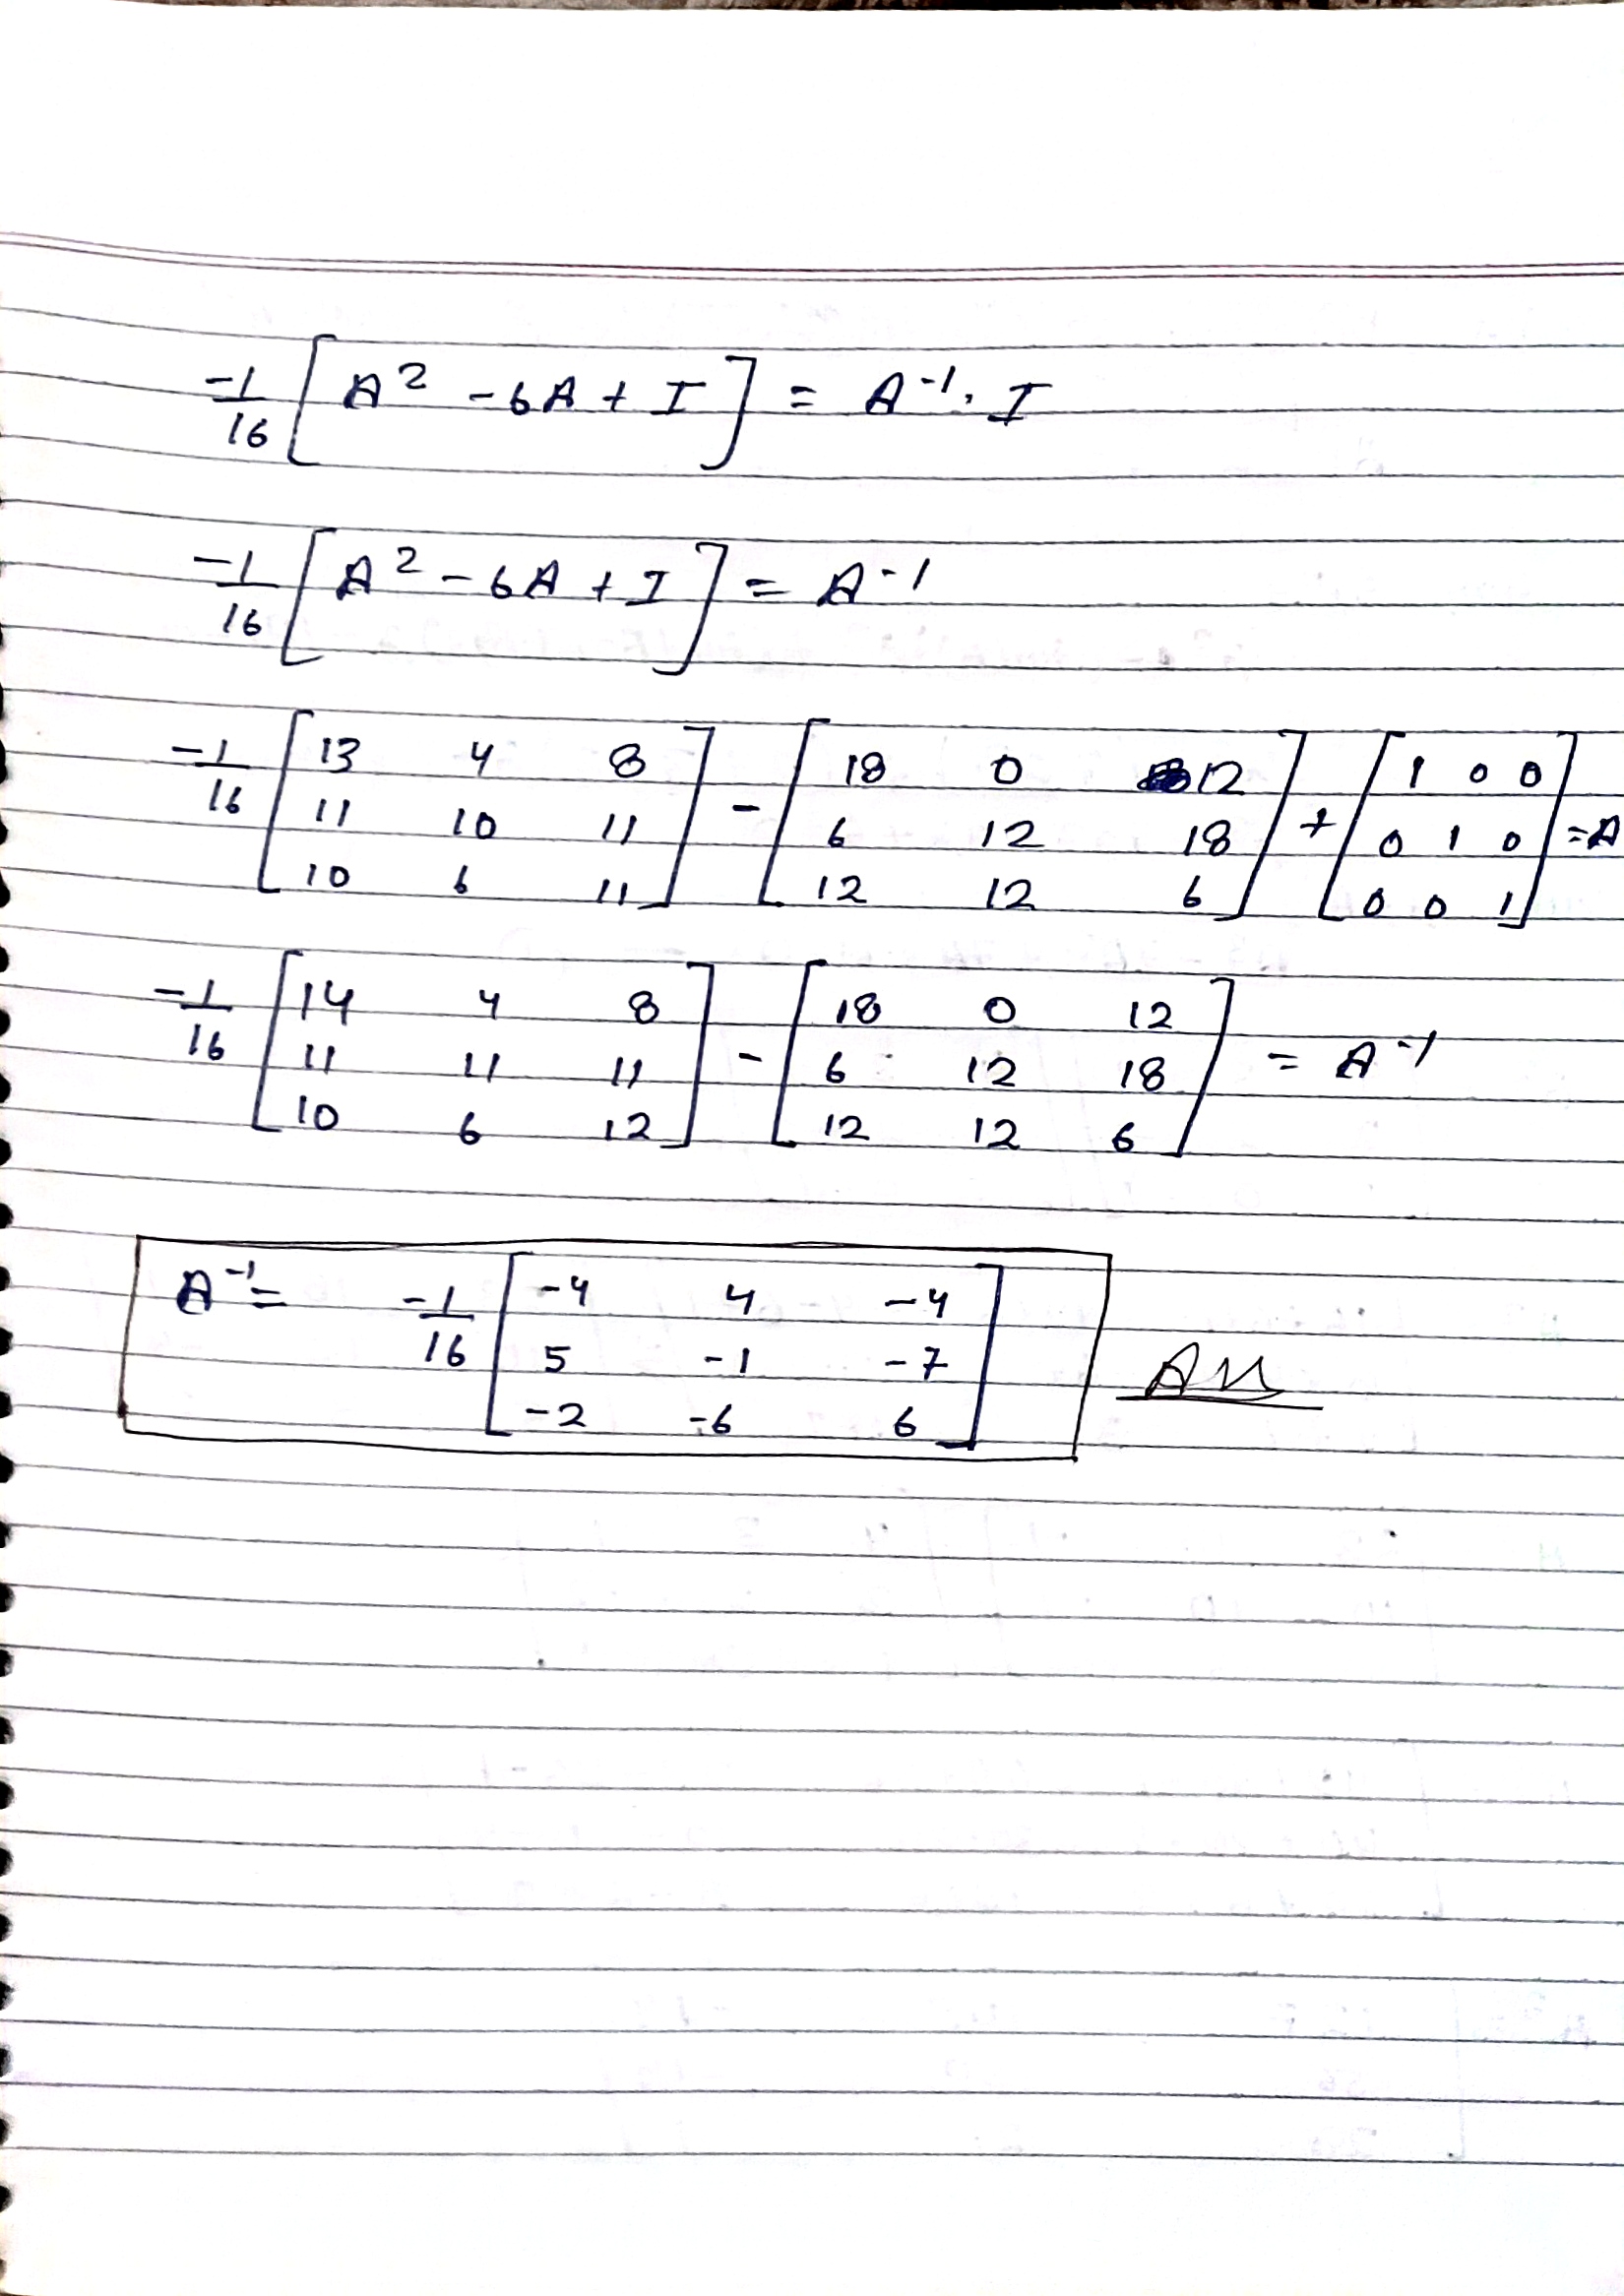 -1/16 [A² - 6A + I] = A⁻¹. I
-1/16 [A² - 6A + I] = A⁻¹
-1/16 [13 4 8; 11 10 11; 10 6 11] - [18 0 12; 6 12 18; 12 12 6] + [1 0 0; 0 1 0; 0 0 1] = A
-1/16 [14 4 8; 11 11 11; 10 6 12] - [18 0 12; 6 12 18; 12 12 6] = A⁻¹
A⁻¹ = -1/16 [-4 4 -4; 5 -1 -7; -2 -6 6] Ans